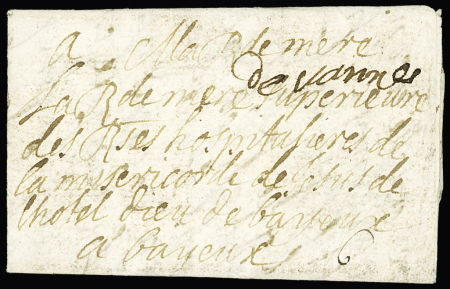 a Ma Rde mere
de vannes
La Rde mere superieure
des Rses hospitalieres de
la misericorde de Jesus de
lhotel dieu de bayeux
a bayeux 6